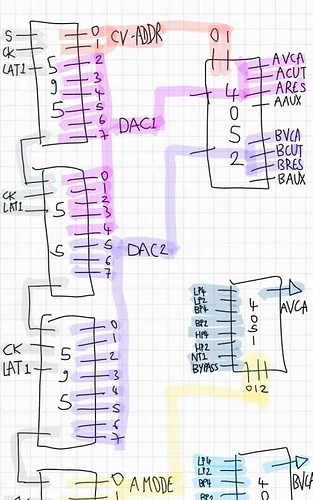 S
CK
LAT1
5
9
5
0
1
2
3
4
5
6
7
CV-ADDR
DAC1
0 1
4
0
5
2
AVCA
ACUT
ARES
AAUX
BVCA
BCUT
BRES
BAUX
CK
LAT1
5
5
0
1
2
3
4
5
6
7
DAC2
CK
LAT1
5
9
5
0
1
2
3
4
5
6
7
LP4
LP2
BP4
BP2
HP4
HP2
NT1
BYPASS
4
0
5
1
0 1 2
AVCA
0
A MODE
LP4
LP2
BP4
BP2
4
BVCA